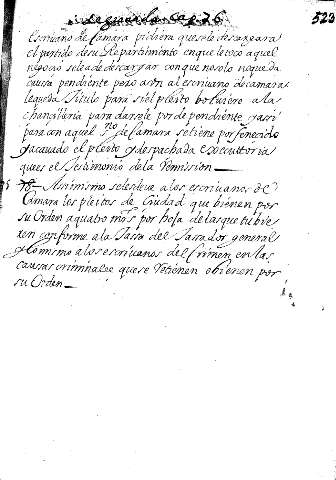 522
escriuano de Camara pidien que se lo descargara
el partido de su Repartimiento en que le toco aquel
negocio se le a de descargar con que no solo no queda
causa pendiente pero aron al escriuano de camara
le queda Titulo para si el pleito boluiere a la
chancilleria para darsele por dependiente y assi
para con aquel sno. de Camara se tiene por fenecido
y acauado el pleito y despachada executtoria
que es el Testimonio de la Remission
78 Assimismo se les deue a los escriuanos de
Camara los pleitos de Ciudad que bienen por
su Orden a quatro mrs. por hoja de las que tubie
ren conforme a la Tassa del Tassador general
y lo mismo a los escriuanos del Crimen en las
causas criminales que se Retienen o bienen por
su Orden